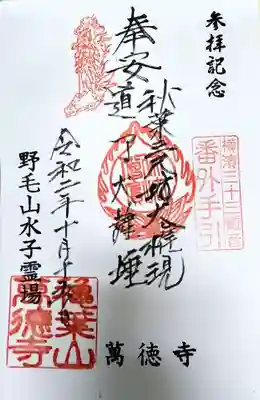 参拝記念
奉安
秋葉三尺坊大権現
道了大薩埵
横濱三十三観音
番外手引
令和二年十月十
野毛山水子霊場
萬徳寺
萬徳寺